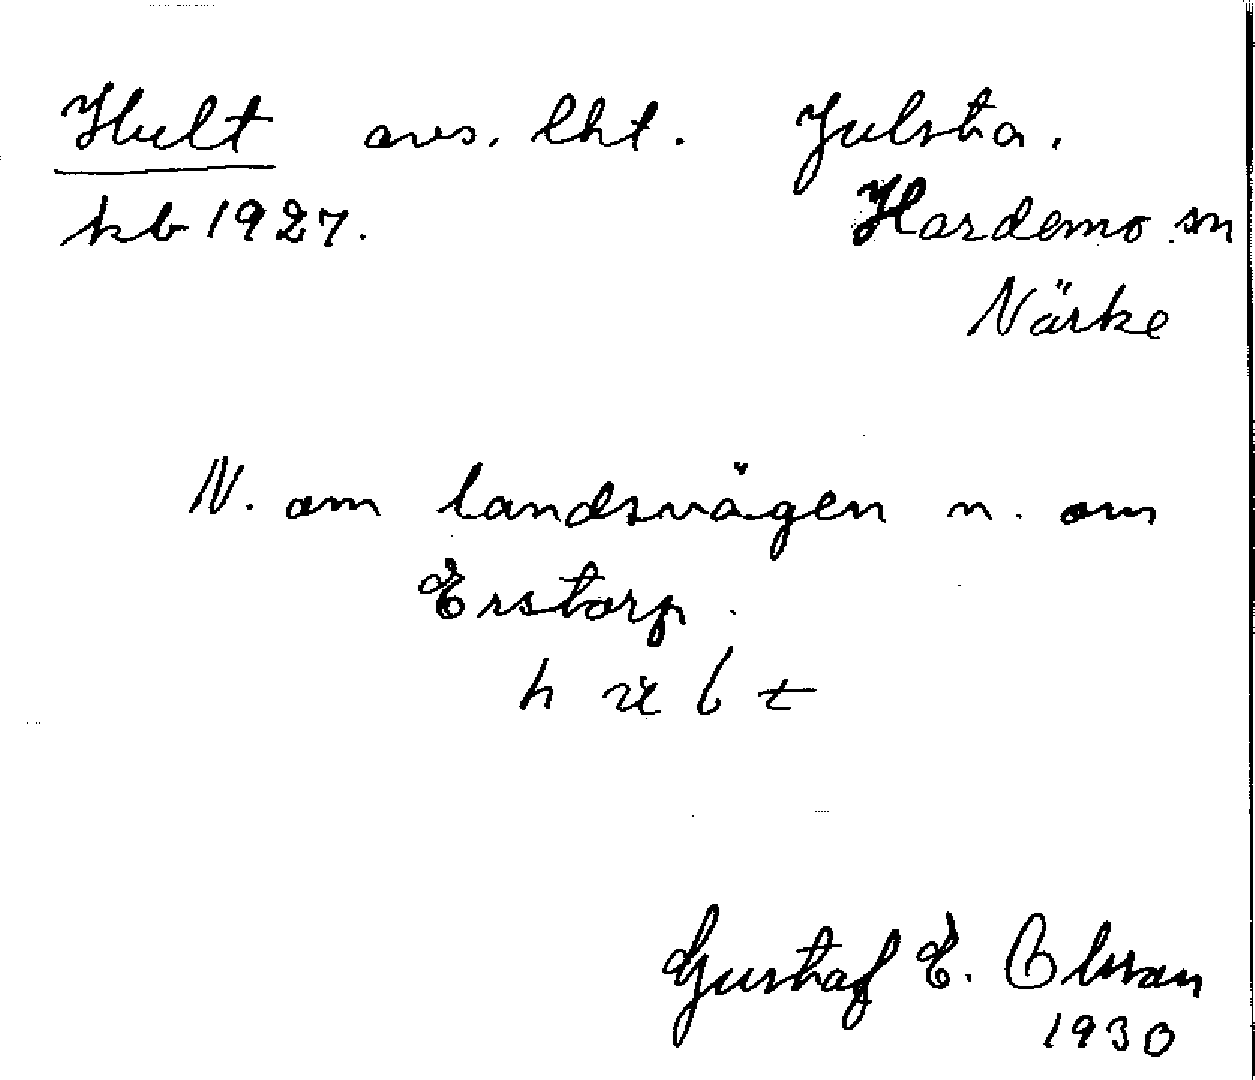 Hult avs. lht. Julsta.
kb 1927. Hardemo sn
Närke
N. om landsvägen n. om
Erstorp.
Gustaf E. Olsson
1930